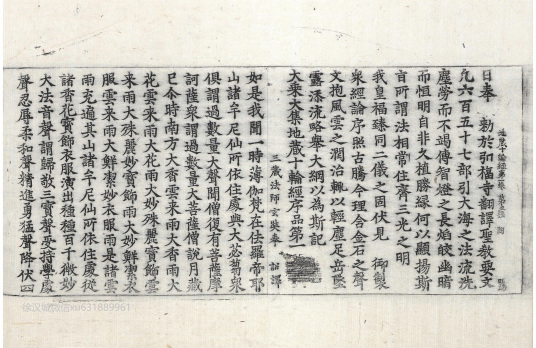 日奉　勑於弘福寺翻譯聖教要文
凢六百五十七部引大海之法流洗
塵勞而不竭傳智燈之長焰皎幽暗
而恒明自非久植勝緣何以顯揚斯
旨所謂法相常住齊三光之明
我皇福臻同二儀之固伏見　御製
衆經論序照古騰今理含金石之聲
文抱風雲之潤治輙以輕塵足岳墜
露添流略舉大綱以為斯記
大乘大集地藏十輪經序品第一
三藏法師玄奘奉　詔譯
如是我聞一時薄伽梵在佉羅帝耶
山諸牟尼仙所依住處與大苾蒭衆
俱謂過數量大聲聞僧復有菩薩摩
訶薩衆謂過數量大菩薩僧說月藏
已今時南方大香雲來雨大香雨大
花雲來雨大花雨大妙殊麗寶飾雲
來雨大殊麗妙寶飾雨大妙鮮潔衣
服雲來雨大鮮潔妙衣服雨是諸雲
雨充遍其山諸牟尼仙所依住處從
諸香花寶飾衣服演出種種百千微妙
大法音聲謂歸敬三寶聲受持學處
聲忍辱柔和聲精進勇猛聲降伏四
徐汉城微信xu631889961